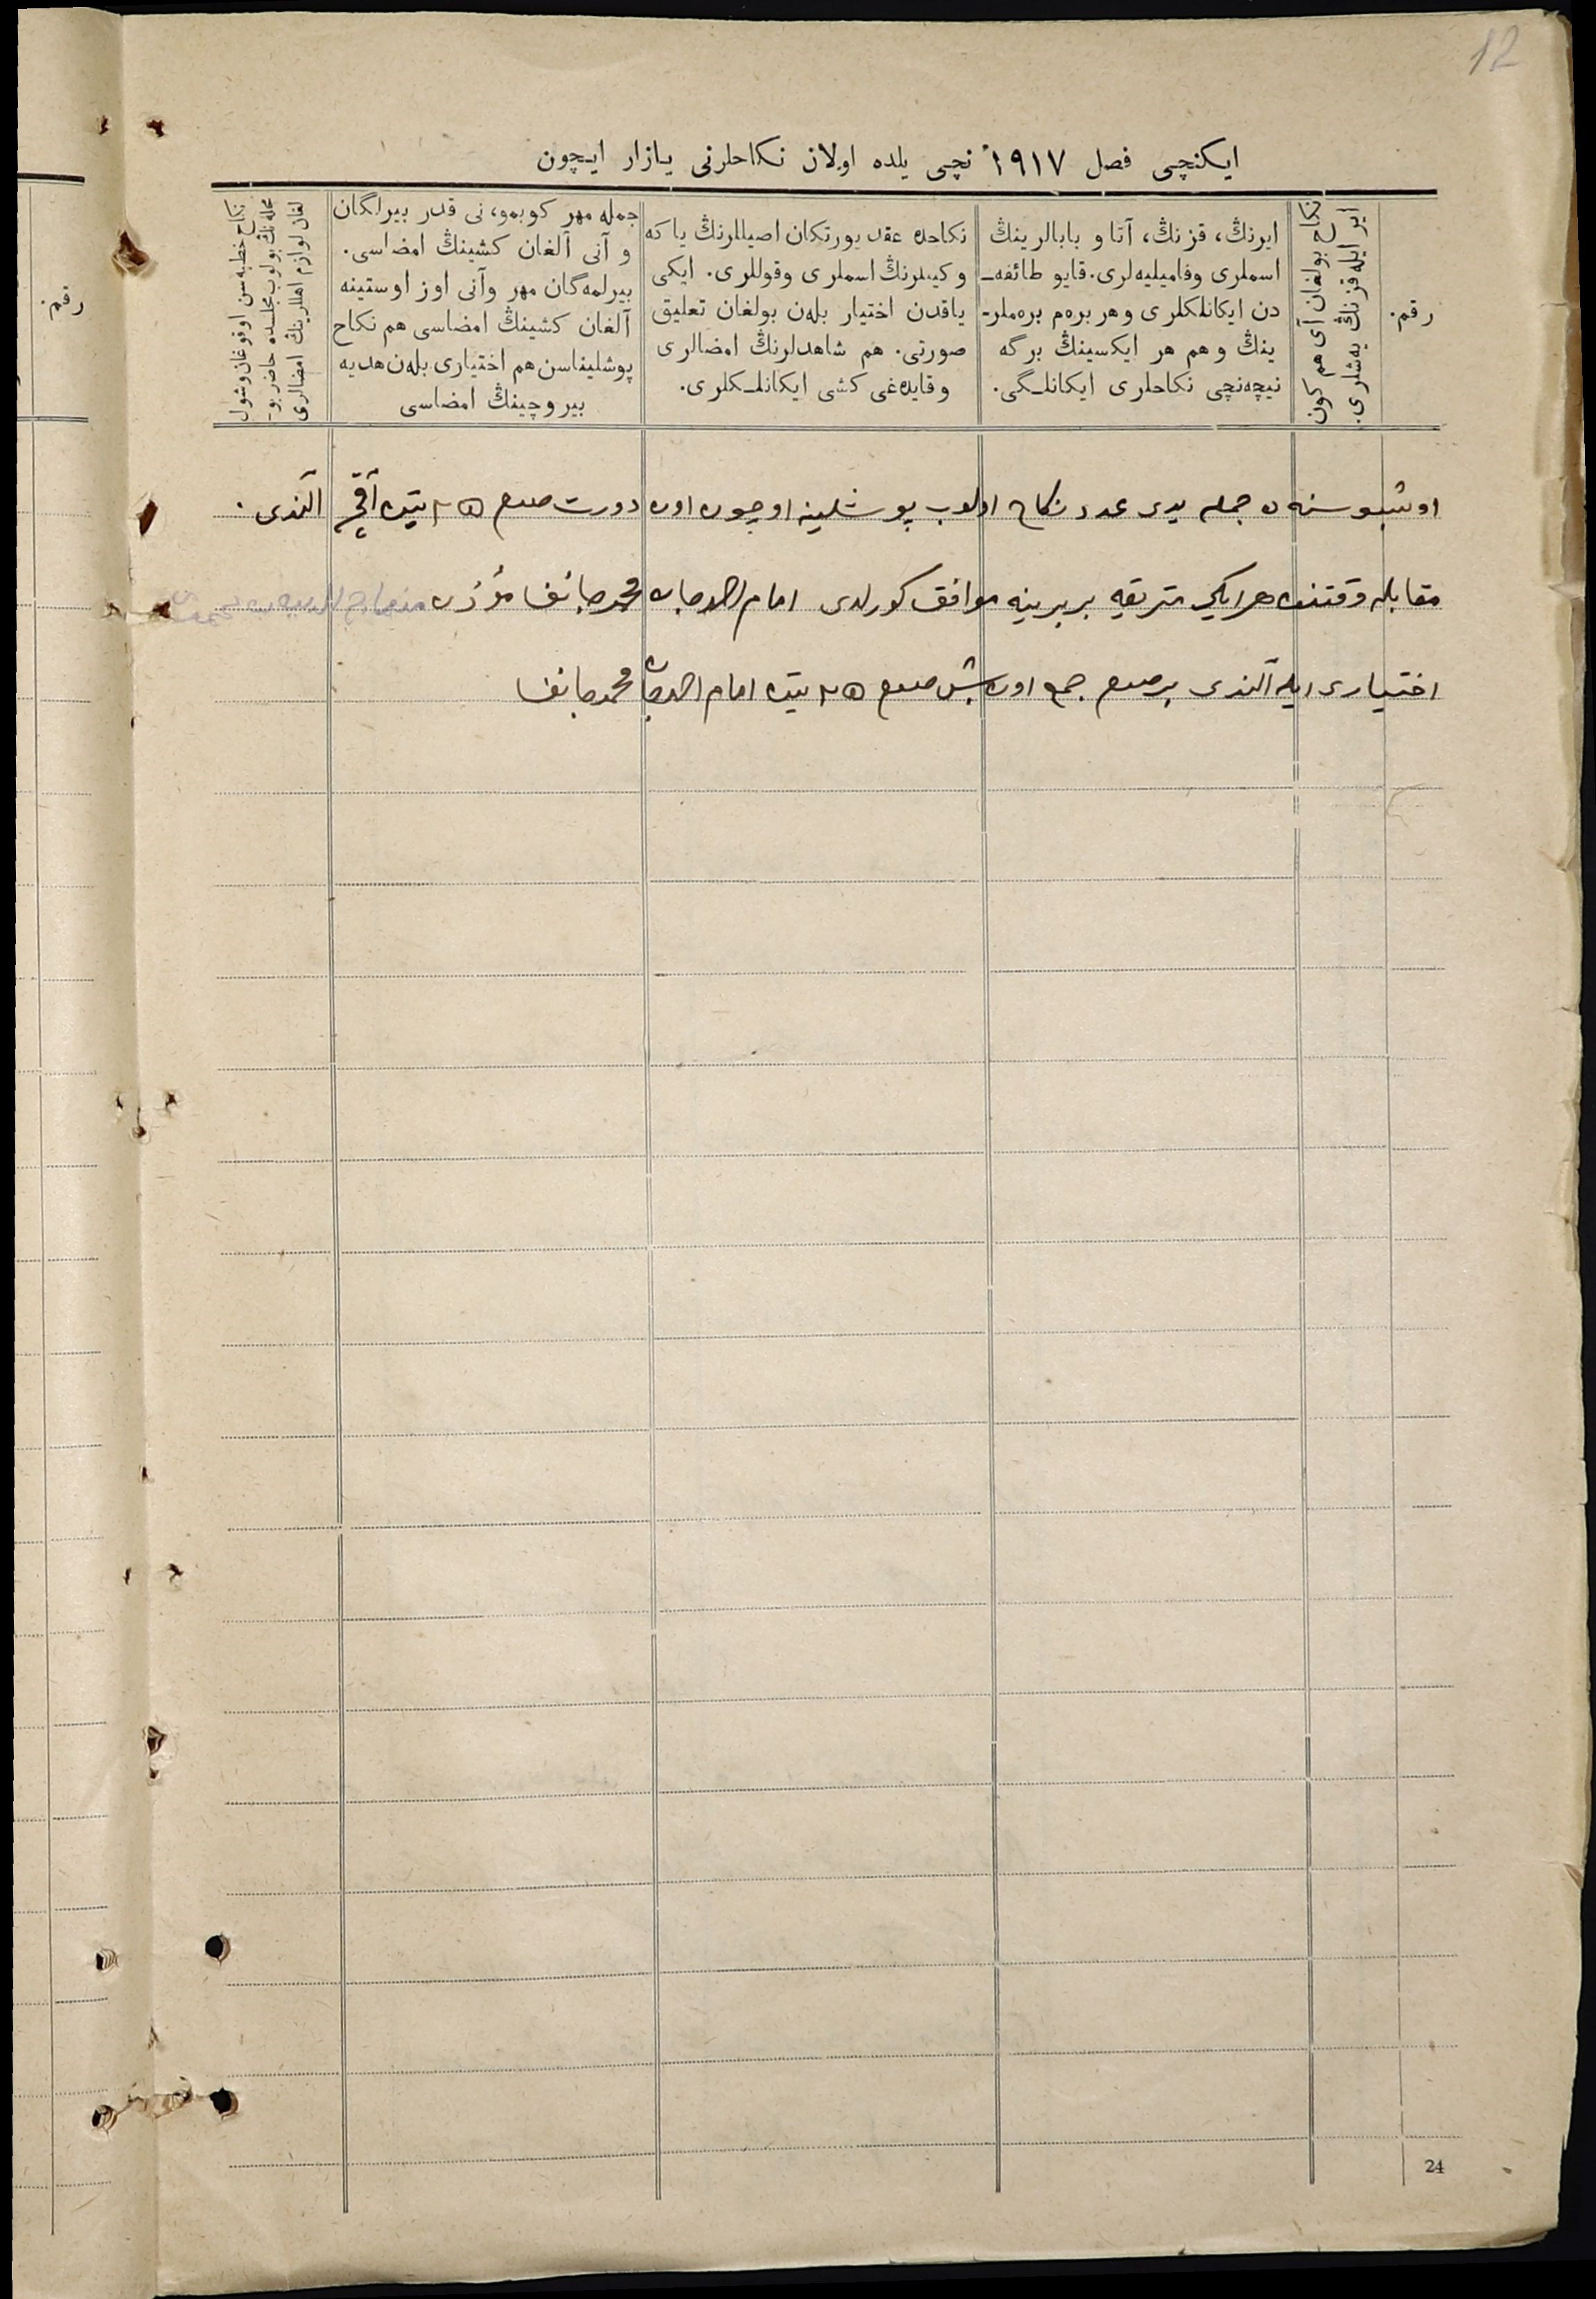 12
ايكنچی فصل ١٩١٧ نچی يلده اولان نكاحلرنی يازار ايچون
رقم.
نكاح بولغان آی هم كون
اير ايله قزنڭ يه‌شلری.
ايرنڭ، قزنڭ، آتا و بابالرينڭ
اسملری وفاميليه‌لری. قايو طائفه‌ـ
دن ايكانلكلری وهر بره‌م بره‌ملرـ
ينڭ وهم هر ايكسينڭ برگه
نيچه‌نچی نكاحلری ايكانلـگی.
نكاحده عقد يورتكان اصيللرنڭ ياكه
وكيللرنڭ اسملری وقوللری. ايكی
ياقدن اختيار بله‌ن بولغان تعليق
صورتی. هم شاهدلرنڭ امضالری
وقايده‌غی كشی ايكانلـكلری.
جمله مهر كوبمو، نی قدر بيرلگان
و آنی آلغان كشينڭ امضاسی.
بيرلمه‌گان مهر وآنی اوز اوستينه
آلغان كشينڭ امضاسی هم نكاح
پوشليناسن هم اختياری بله‌ن هديه
بيروچينڭ امضاسی
نكاح خطبه‌سن اوقوغان وشول
محله‌نڭ بولوب مجلسده حاضر بوـ
لغان لوازم اهللرينڭ امضالری
رقم.
اوشبو سنه‌ده جمله يدی عدد نكاح اولوب پوشلينه اوچون اون دورت صوم ٢٥ تين آقچه آلندی.
مقابله وقتنده هر ايكی متريقه بربرينه موافق كورلدی امام احمدجان محمدجانف مؤذن
اختياری ايله آلندی بر صوم جمع اون بش صوم ٢٥ تين امام احمدجان محمدجانف
24